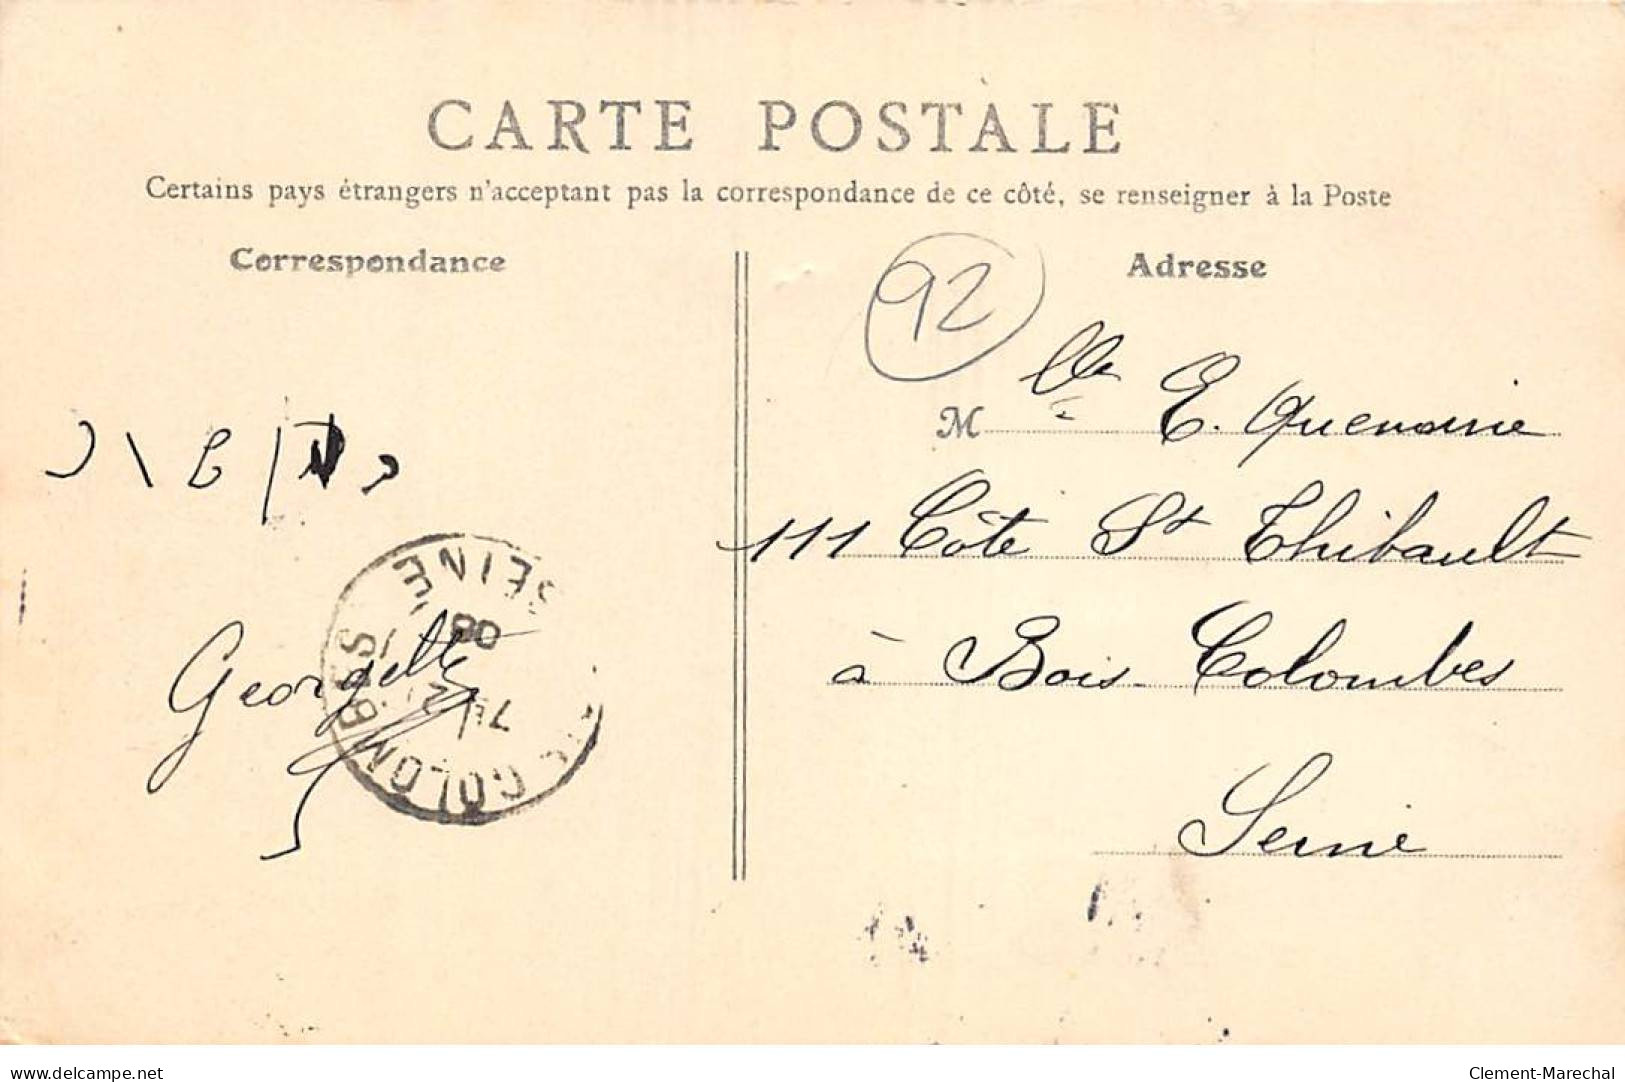 CARTE POSTALE
Certains pays étrangers n'acceptant pas la correspondance de ce côté, se renseigner à la Poste
Correspondance
Adresse
92
Mlle E.
111 Côte St Thibault
à Bois-Colombes
Seine
Georgette
COLOMBES
SEINE
08
www.delcampe.net
Clement-Marechal